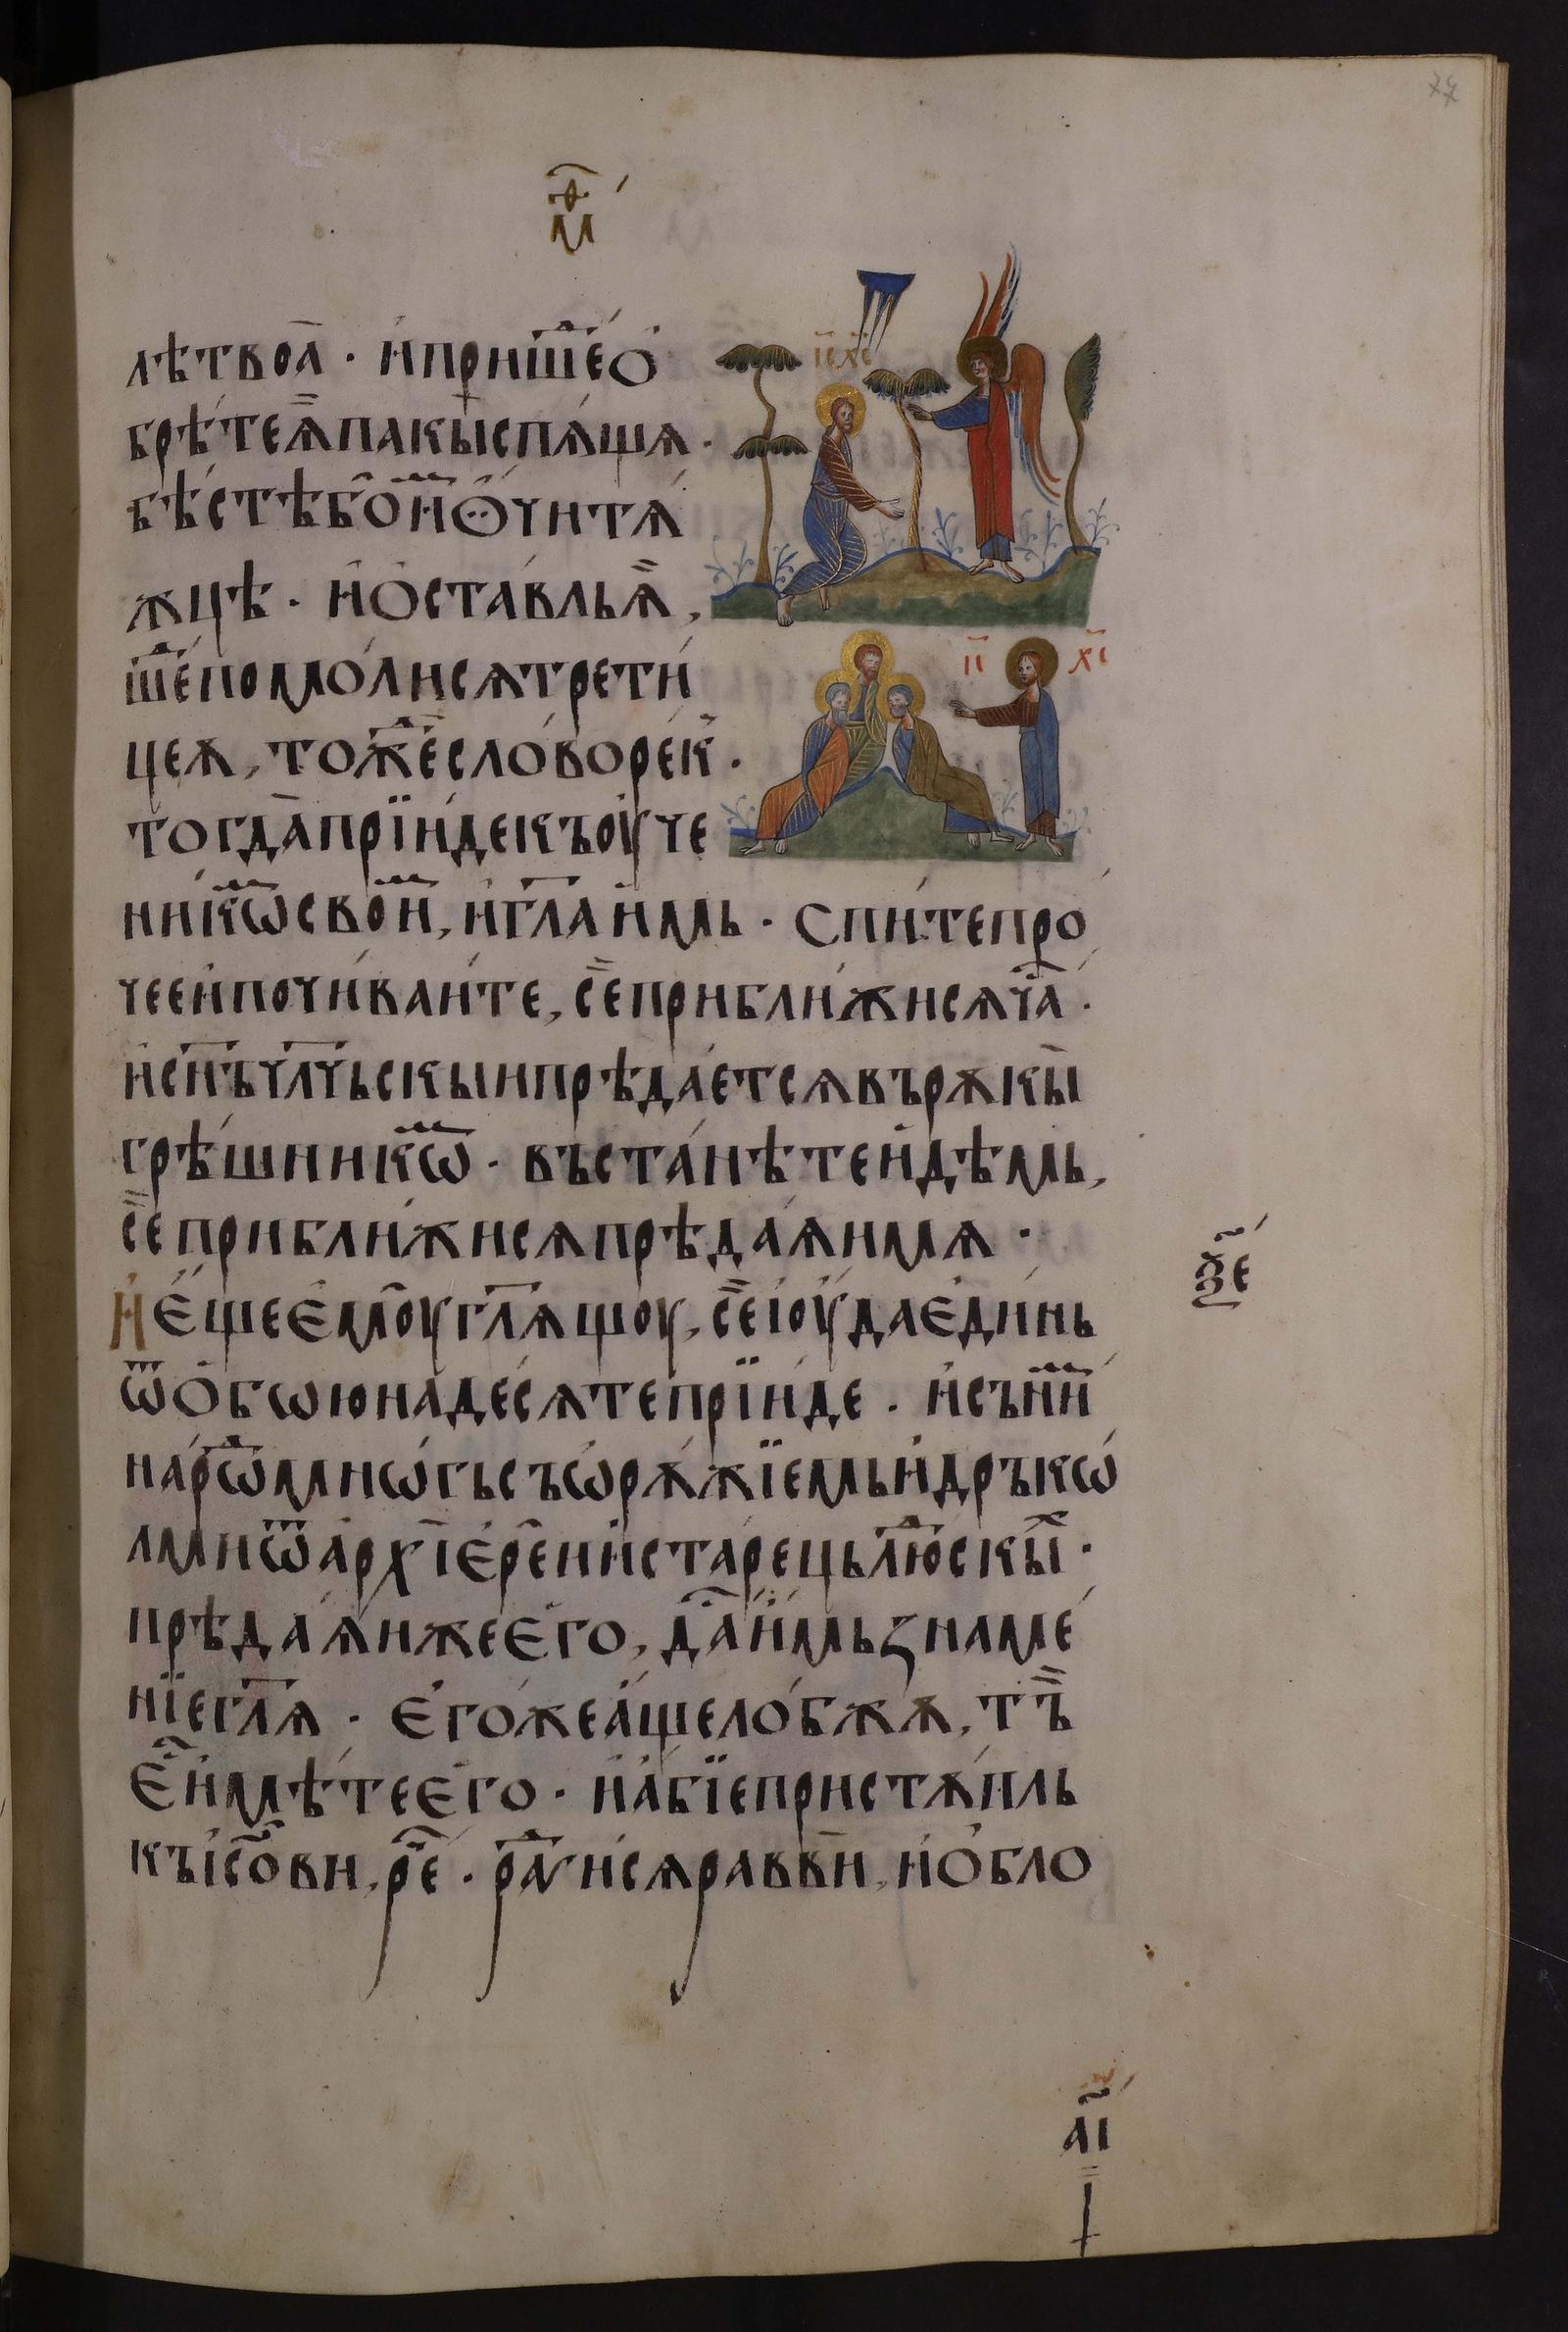 м҃ф
лѣтвоа̀ · и҆при́ше́о҆
брѣ́теѧ҆̀пакы̀спѧ́щѧ ·
бѣ́стѣбои҆ѻ҆чи́тѧ
ѫцѣ · и҆о҆ста́вльѧ҆̀,
ше́помо́лисѧтрети́
цеѫ, тожесло́воре́к ·
тогда̀прїи́декъоу҆че
никѡсвои, и҆г҃ла и҆мь · Спи́тепро́
чееи҆почи́ваите, сѐприбли́жисѧча ·
и҆сн҃ъчл҃чьскыипрѣдае́тсѧвърѫкы̀
грѣ́шникѡ · въста́нѣтеи҆дѣмь,
сѐприбли́жисѧпрѣдаѧ́имѧ ·
И҆е҆щее҆моуг҃лѧщоу, сѐі҆оу́дае҆ди́нь
ѿо҆бѡюна́десѧтепрїи́де · и҆съни
наро́ѡмнѡ́гьсъѡ҆рѫ́жїемьи҆дръкѡ́
лмиѿа҆рхїе҆ре́ии҆ста́рецьлю́скы ·
прѣдаѧ́ижее҆го̀, даи҆мьꙁнаме́
нїег҃лѧ · Е҆го́жеа҆щело́бжѫ, тъ̀
е҆и҆мѣ́тее҆го̀ · и҆а҆́бїепристѫ́пль
къі҆со́ви, ре · ра́исѧравви̏, и҆о҆бло
І҃С Х҃С
І҃С Х҃С
рѯе
аі